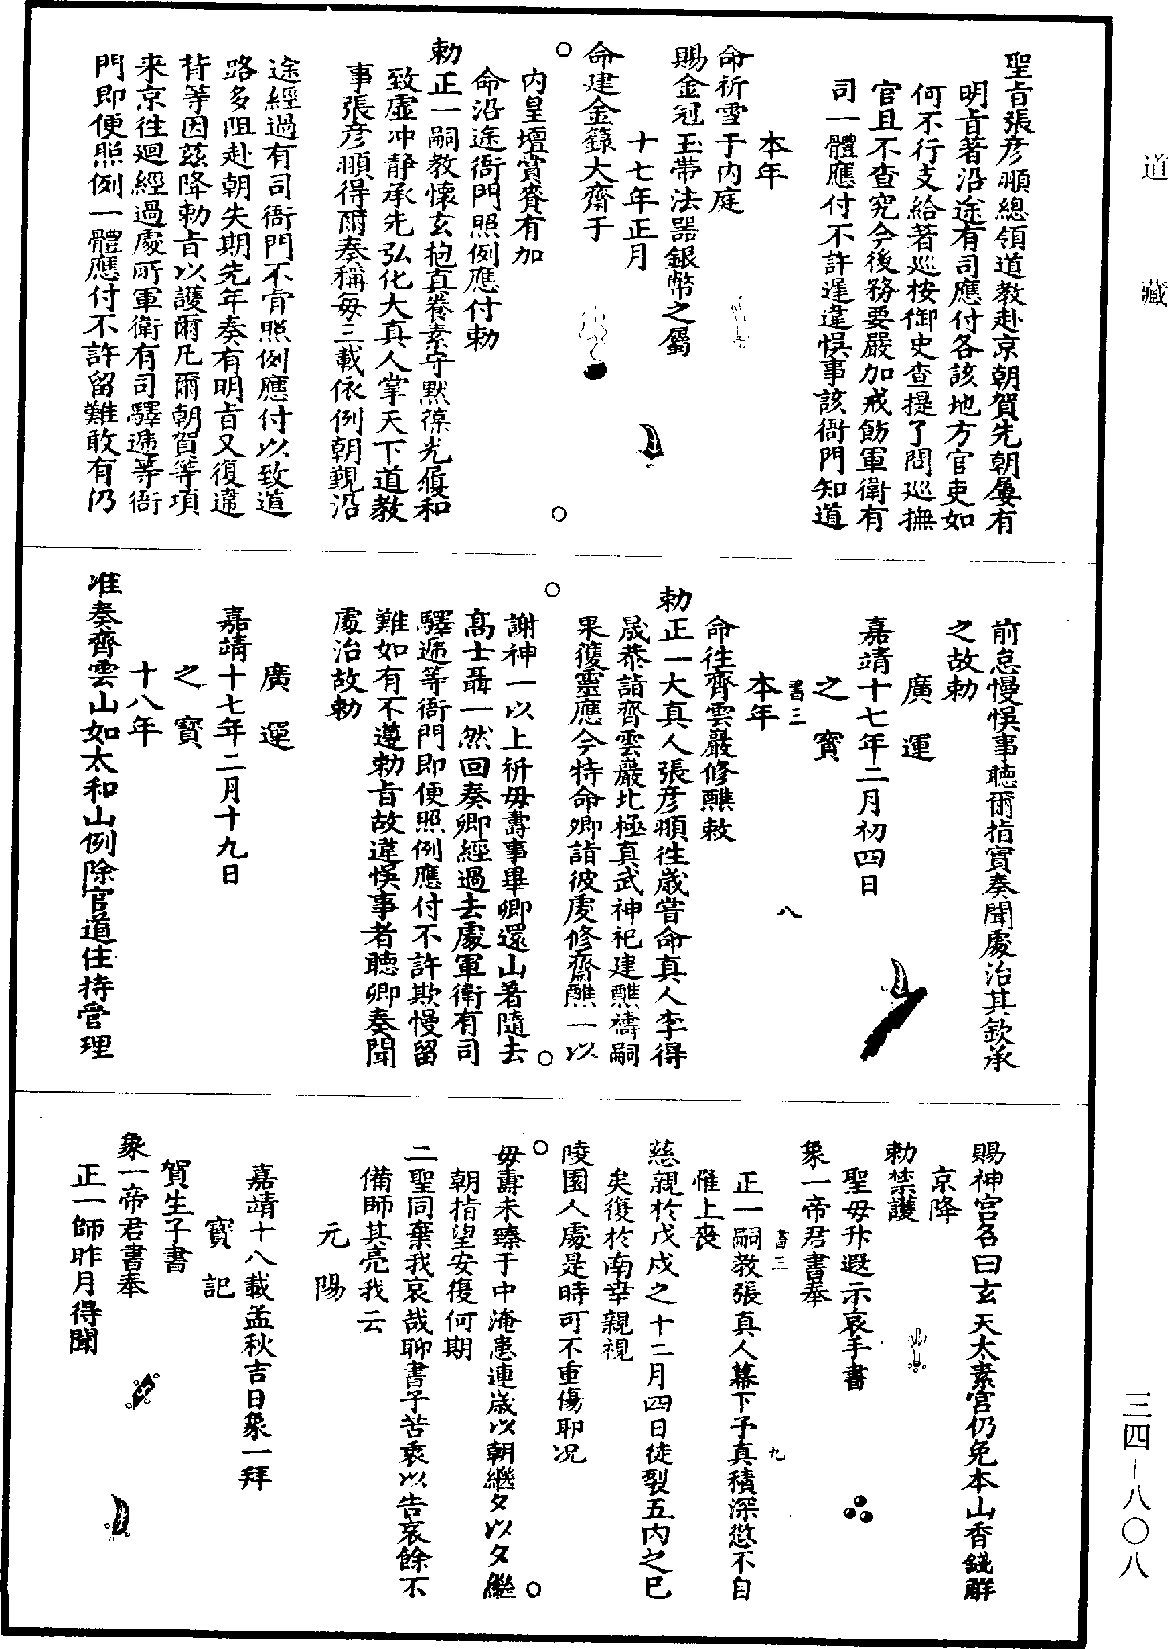 聖旨張彥頨總領道教赴京朝賀先朝屢有
明旨著沿途有司應付各該地方官吏如
何不行支給著巡按御史查提了問巡撫
官且不查究今後務要嚴加戒飭軍衛有
司一體應付不許遲違悞事該衙門知道
本年
命祈雪于内庭
賜金冠玉帶法器銀幣之屬
十七年正月
命建金籙大齋于
内皇壇賞賚有加
命沿途衙門照例應付勅
勅正一嗣教懷玄抱真養素守默葆光履和
致虛冲静承先弘化大真人掌天下道教
事張彥頨得爾奏稱每三載依例朝覲沿
途經過有司衙門不肯照例應付以致道
路多阻赴朝失期先年奏有明旨又復違
背等因茲降勅旨以護爾凡爾朝賀等項
来京往迴經過處所軍衛有司驛遞等衙
門即便照例一體應付不許留難敢有仍
前怠慢悞事聽爾指實奏聞處治其欽承
之故勅
廣運
嘉靖十七年二月初四日
之寳
書三 八
本年
命往齊雲巖修醮敕
勅正一大真人張彥頨往歲甞命真人李得
晟恭詣齊雲巖北極真武神祀建醮禱嗣
果獲靈應今特命卿詣彼虔修齋醮一以
謝神一以上祈毋壽事畢卿還山著隨去
高士聶一然回奏卿經過去處軍衛有司
驛遞等衙門即便照例應付不許欺慢留
難如有不遵勅旨故違悞事者聽卿奏聞
處治故勅
廣運
嘉靖十七年二月十九日
之寳
十八年
准奏齊雲山如太和山例除官道住持管理
賜神宫名曰玄天太素宫仍免本山香錢觧
京降
勅禁護
聖毋升遐示哀手書
象一帝君書奉
書三 九
正一嗣教張真人幕下予真積深愆不自
惟上喪
慈親於戊戌之十二月四日徒裂五内之巳
矣復於南幸親視
陵園人處是時可不重傷耶况
毋壽未臻于中淹患連歲以朝繼夕以夕繼
朝指望安復何期
二聖同棄我哀哉聊書予苦衷以告哀餘不
備師其亮我云
元陽
嘉靖十八載孟秋吉日象一拜
寳記
賀生子書
象一帝君書奉
正一師昨月得聞
道藏
三四-八〇八